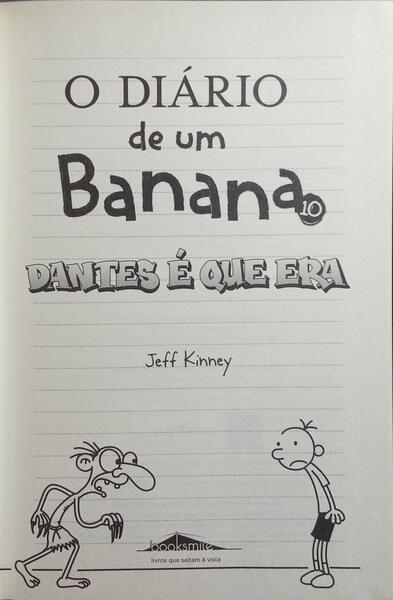 O DIÁRIO
de um
Banana 10
DANTES É QUE ERA
Jeff Kinney
booksmile
livros que saltam à vista